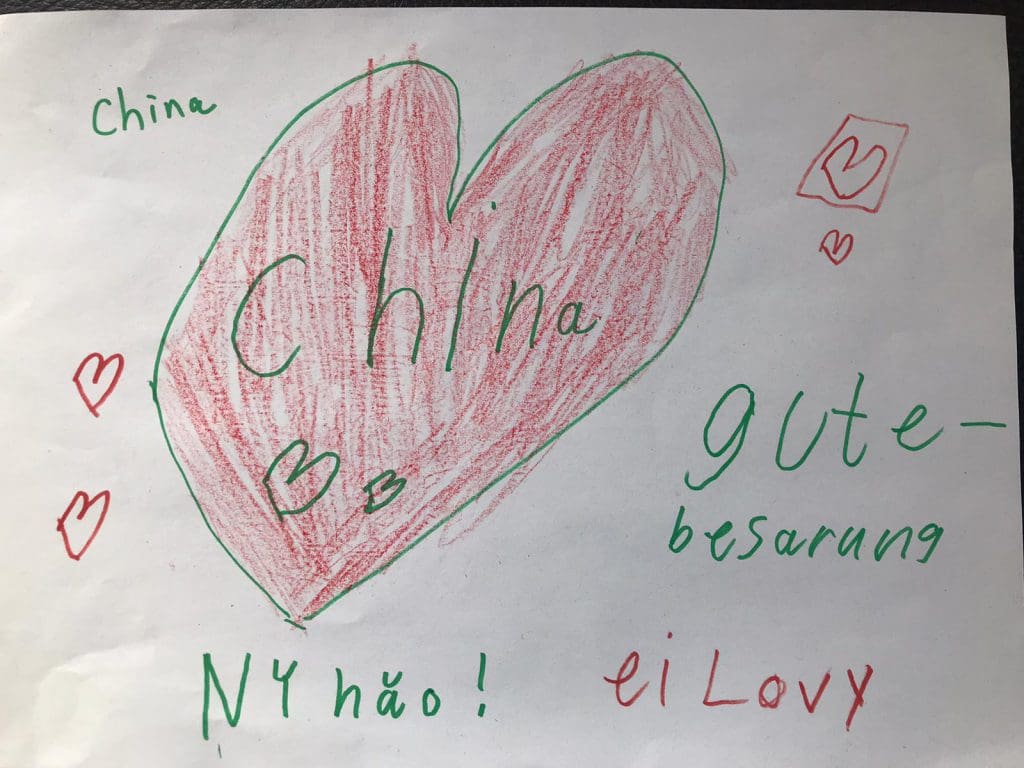 China
China
gute-
besarung
NY hăo!
ei Lovy